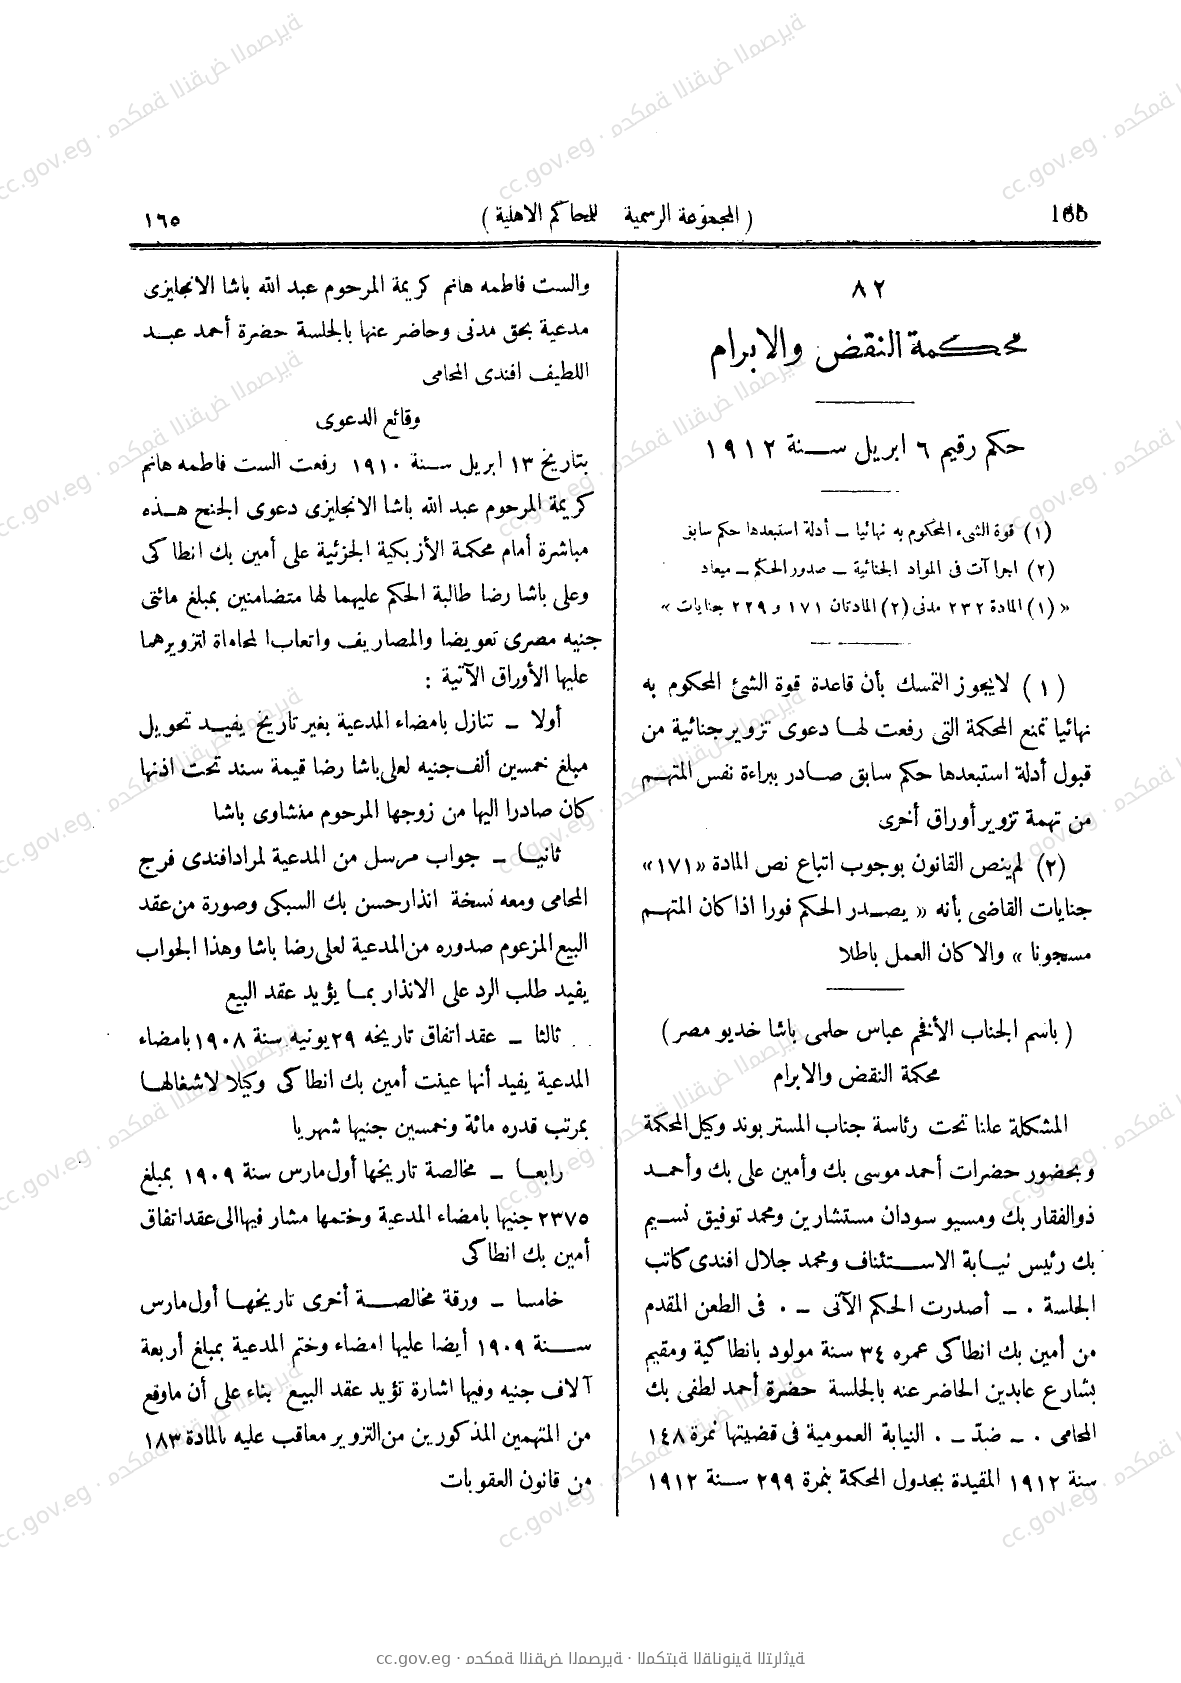 165 ( المجموعة الرسمية للمحاكم الاهلية ) ١٦٥
٨٢
محكمة النقض والابرام
حكم رقيم ٦ ابريل سنة ١٩١٢
(١) قوة الشىء المحكوم به نهائيا – أدلة استبعدها حكم سابق
(٢) اجراآت فى المواد الجنائية – صدور الحكم – ميعاد
« (١) المادة ٢٣٢ مدنى (٢) المادتان ١٧١ و ٢٢٩ جنايات »
( ١ ) لايجوز التمسك بأن قاعدة قوة الشئ المحكوم به
نهائيا تمنع المحكمة التى رفعت لها دعوى تزوير جنائية من
قبول أدلة استبعدها حكم سابق صادر ببراءة نفس المتهم
من تهمة تزوير أوراق أخرى
(٢) لم ينص القانون بوجوب اتباع نص المادة «١٧١»
جنايات القاضى بأنه « يصدر الحكم فورا اذا كان المتهم
مسجونا » والا كان العمل باطلا
( باسم الجناب الأفخم عباس حلمى باشا خديو مصر )
محكمة النقض والابرام
المشكلة علنا تحت رئاسة جناب المستر بوند وكيل المحكمة
وبحضور حضرات أحمد موسى بك وأمين على بك وأحمد
ذو الفقار بك ومسيو سودان مستشارين ومحمد توفيق نسيم
بك رئيس نيابة الاستئناف ومحمد جلال افندى كاتب
الجلسة ٠ – أصدرت الحكم الآتى – ٠ فى الطعن المقدم
من أمين بك انطاكى عمره ٣٤ سنة مولود بانطاكية ومقيم
بشارع عابدين الحاضر عنه بالجلسة حضرة أحمد لطفى بك
المحامى ٠ – ضدّ – ٠ النيابة العمومية فى قضيتها نمرة ١٤٨
سنة ١٩١٢ المقيدة بجدول المحكمة بنمرة ٢٩٩ سنة ١٩١٢
والست فاطمه هانم كريمة المرحوم عبد الله باشا الانجليزى
مدعية بحق مدنى وحاضر عنها بالجلسة حضرة أحمد عبد
اللطيف افندى المحامى
وقائع الدعوى
بتاريخ ١٣ ابريل سنة ١٩١٠ رفعت الست فاطمه هانم
كريمة المرحوم عبد الله باشا الانجليزى دعوى الجنح هذه
مباشرة أمام محكمة الأزبكية الجزئية على أمين بك انطاكى
وعلى باشا رضا طالبة الحكم عليهما لها متضامنين بمبلغ مائتى
جنيه مصرى تعويضا والمصاريف واتعاب المحاماة لتزويرهما
عليها الأوراق الآتية :
أولا – تنازل بامضاء المدعية بغير تاريخ يفيد تحويل
مبلغ خمسين ألف جنيه لعلى باشا رضا قيمة سند تحت اذنها
كان صادرا اليها من زوجها المرحوم منشاوى باشا
ثانيا – جواب مرسل من المدعية لمراد افندى فرج
المحامى ومعه نسخة انذار حسن بك السبكى وصورة من عقد
البيع المزعوم صدوره من المدعية لعلى رضا باشا وهذا الجواب
يفيد طلب الرد على الانذار بما يؤيد عقد البيع
ثالثا – عقد اتفاق تاريخه ٢٩ يونيه سنة ١٩٠٨ بامضاء
المدعية يفيد أنها عينت أمين بك انطاكى وكيلا لاشغالها
بمرتب قدره مائة وخمسين جنيها شهريا
رابعا – مخالصة تاريخها أول مارس سنة ١٩٠٩ بمبلغ
٢٣٧٥ جنيها بامضاء المدعية وختمها مشار فيها الى عقد اتفاق
أمين بك انطاكى
خامسا – ورقة مخالصة أخرى تاريخها أول مارس
سنة ١٩٠٩ أيضا عليها امضاء وختم المدعية بمبلغ أربعة
آلاف جنيه وفيها اشارة تؤيد عقد البيع بناء على أن ماوقع
من المتهمين المذكورين من التزوير معاقب عليه بالمادة ١٨٣
من قانون العقوبات
cc.gov.eg · محكمة النقض المصرية · المكتبة القانونية التراثية